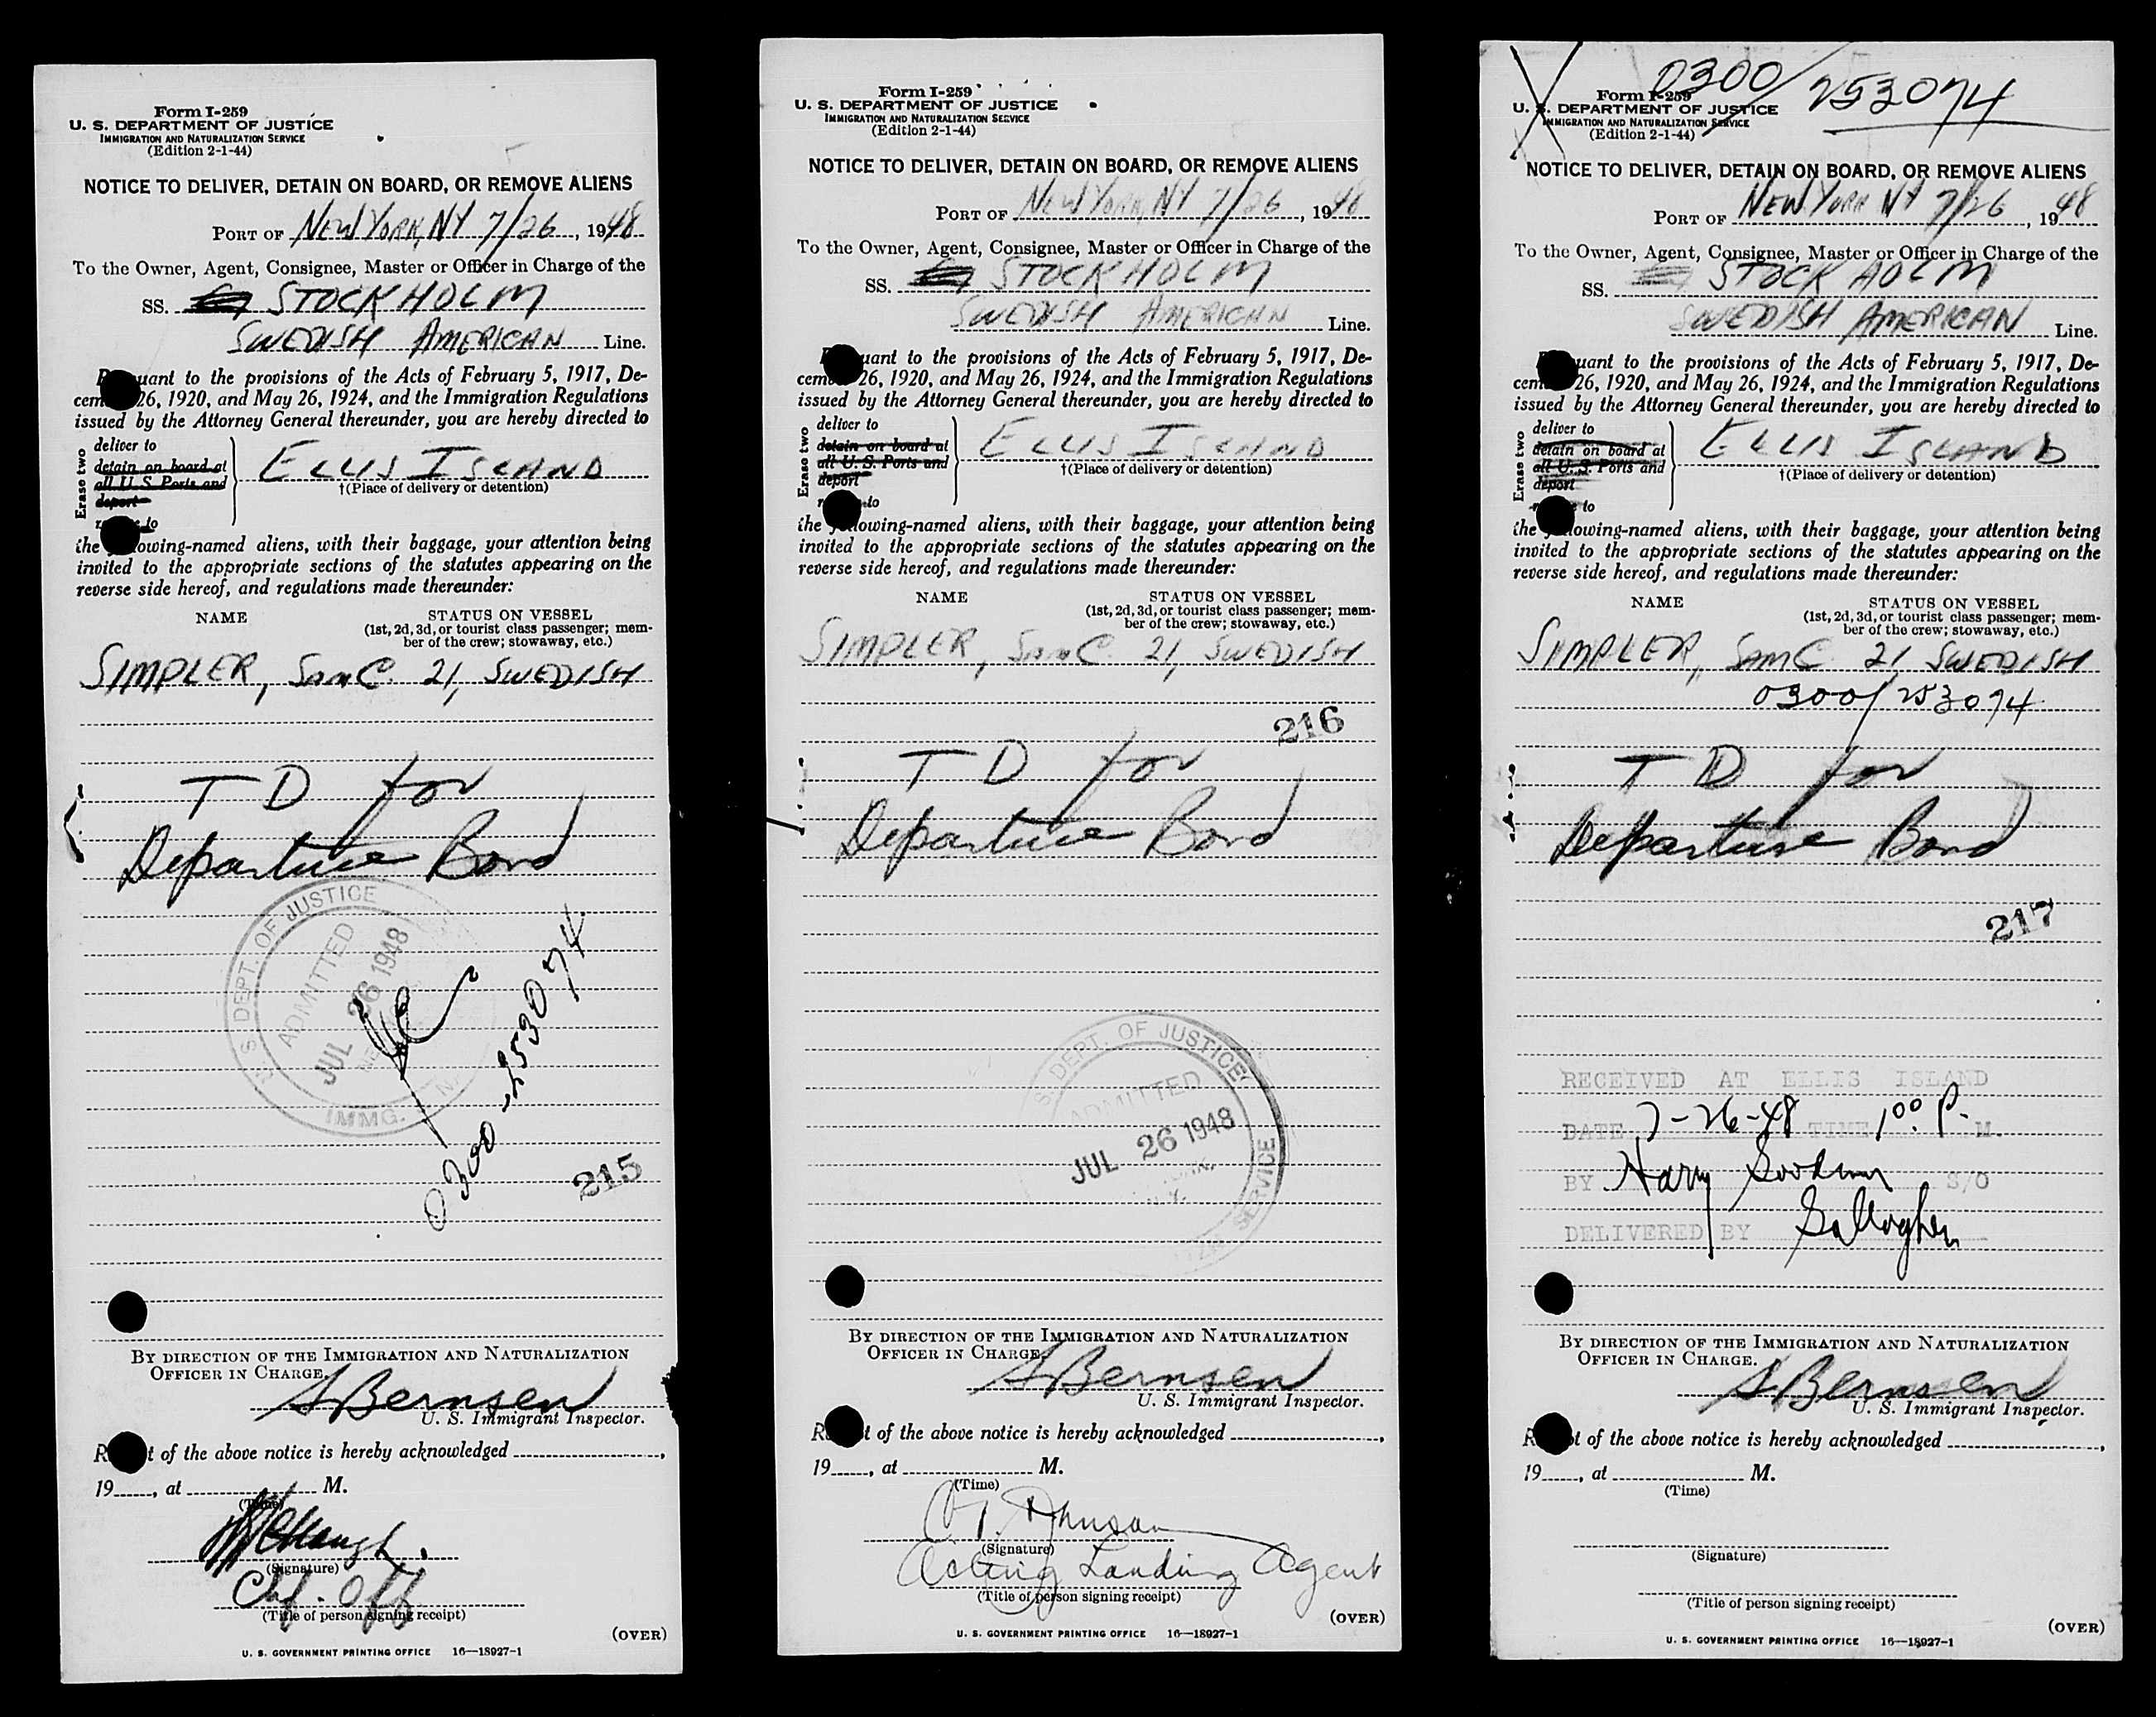 Form I-259
U. S. DEPARTMENT OF JUSTICE
IMMIGRATION AND NATURALIZATION SERVICE
(Edition 2-1-44)
NOTICE TO DELIVER, DETAIN ON BOARD, OR REMOVE ALIENS
PORT OF NEW YORK, NY 7/26, 1948
To the Owner, Agent, Consignee, Master or Officer in Charge of the
SS. STOCKHOLM
SWEDISH AMERICAN Line.
uant to the provisions of the Acts of February 5, 1917, De-
cem 26, 1920, and May 26, 1924, and the Immigration Regulations
issued by the Attorney General thereunder, you are hereby directed to
Erase two
deliver to
detain on board at
all U. S. Ports and
deport
to
ELLIS ISLAND
†(Place of delivery or detention)
the lowing-named aliens, with their baggage, your attention being
invited to the appropriate sections of the statutes appearing on the
reverse side hereof, and regulations made thereunder:
NAME STATUS ON VESSEL
(1st, 2d, 3d, or tourist class passenger; mem-
ber of the crew; stowaway, etc.)
SIMPLER, Sam C. 21, SWEDISH
T D for
Departure Bond
U. S. DEPT. OF JUSTICE
ADMITTED
JUL 26 1948
IMMG.
0300-253074
215
BY DIRECTION OF THE IMMIGRATION AND NATURALIZATION
OFFICER IN CHARGE.
S Bernsen
U. S. Immigrant Inspector.
R t of the above notice is hereby acknowledged ,
19 , at M.
(Time)
(Signature)
Chf. Off
(Title of person signing receipt)
(OVER)
U. S. GOVERNMENT PRINTING OFFICE 16—18927-1
Form I-259
U. S. DEPARTMENT OF JUSTICE
IMMIGRATION AND NATURALIZATION SERVICE
(Edition 2-1-44)
NOTICE TO DELIVER, DETAIN ON BOARD, OR REMOVE ALIENS
PORT OF NEW YORK, NY 7/26, 1948
To the Owner, Agent, Consignee, Master or Officer in Charge of the
SS. STOCKHOLM
SWEDISH AMERICAN Line.
uant to the provisions of the Acts of February 5, 1917, De-
cem 26, 1920, and May 26, 1924, and the Immigration Regulations
issued by the Attorney General thereunder, you are hereby directed to
Erase two
deliver to
detain on board at
all U. S. Ports and
deport
to
ELLIS ISLAND
†(Place of delivery or detention)
the lowing-named aliens, with their baggage, your attention being
invited to the appropriate sections of the statutes appearing on the
reverse side hereof, and regulations made thereunder:
NAME STATUS ON VESSEL
(1st, 2d, 3d, or tourist class passenger; mem-
ber of the crew; stowaway, etc.)
SIMPLER, Sam C. 21, SWEDISH
216
T D for
Departure Bond
S. DEPT. OF JUSTICE
ADMITTED
JUL 26 1948
N.Y.
SERVICE
BY DIRECTION OF THE IMMIGRATION AND NATURALIZATION
OFFICER IN CHARGE.
S Bernsen
U. S. Immigrant Inspector.
R t of the above notice is hereby acknowledged ,
19 , at M.
(Time)
Johnson
(Signature)
Acting Landing Agent
(Title of person signing receipt)
(OVER)
U. S. GOVERNMENT PRINTING OFFICE 16—18927-1
0300/253074
Form I-259
U. S. DEPARTMENT OF JUSTICE
IMMIGRATION AND NATURALIZATION SERVICE
(Edition 2-1-44)
NOTICE TO DELIVER, DETAIN ON BOARD, OR REMOVE ALIENS
PORT OF NEW YORK NY 7/26, 1948
To the Owner, Agent, Consignee, Master or Officer in Charge of the
SS. STOCKHOLM
SWEDISH AMERICAN Line.
uant to the provisions of the Acts of February 5, 1917, De-
cem 26, 1920, and May 26, 1924, and the Immigration Regulations
issued by the Attorney General thereunder, you are hereby directed to
Erase two
deliver to
detain on board at
all U. S. Ports and
deport
to
ELLIS ISLAND
†(Place of delivery or detention)
the lowing-named aliens, with their baggage, your attention being
invited to the appropriate sections of the statutes appearing on the
reverse side hereof, and regulations made thereunder:
NAME STATUS ON VESSEL
(1st, 2d, 3d, or tourist class passenger; mem-
ber of the crew; stowaway, etc.)
SIMPLER, Sam C. 21 SWEDISH
0300/253074
T D for
Departure Bond
217
RECEIVED AT ELLIS ISLAND
DATE 7-26-48 TIME 1:00 P. M.
BY Harry S/O
DELIVERED BY Gallagher
BY DIRECTION OF THE IMMIGRATION AND NATURALIZATION
OFFICER IN CHARGE.
S Bernsen
U. S. Immigrant Inspector.
R t of the above notice is hereby acknowledged ,
19 , at M.
(Time)
(Signature)
(Title of person signing receipt)
(OVER)
U. S. GOVERNMENT PRINTING OFFICE 16—18927-1